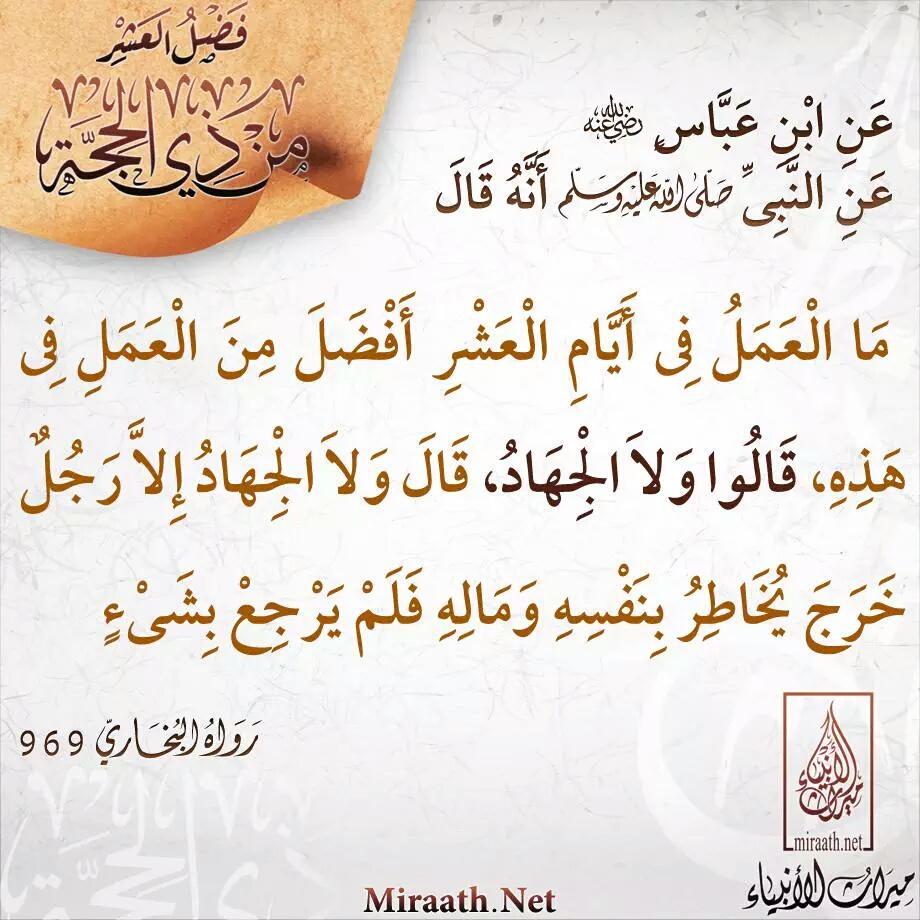 فَضْلُ العَشْرِ
مِنْ ذِي الحِجَّة
عَنِ ابْنِ عَبَّاسٍ رضي الله عنه
عَنِ النَّبِىِّ صلى الله عليه وسلم أَنَّهُ قَالَ
مَا الْعَمَلُ فِى أَيَّامِ الْعَشْرِ أَفْضَلَ مِنَ الْعَمَلِ فِى
هَذِهِ، قَالُوا وَلاَ الْجِهَادُ، قَالَ وَلاَ الْجِهَادُ إِلاَّ رَجُلٌ
خَرَجَ يُخَاطِرُ بِنَفْسِهِ وَمَالِهِ فَلَمْ يَرْجِعْ بِشَىْءٍ
رَوَاهُ البُخَارِيّ 969
ميراث الأنبياء
miraath.net
ميراث الأنبياء
Miraath.Net
ذي الحجة